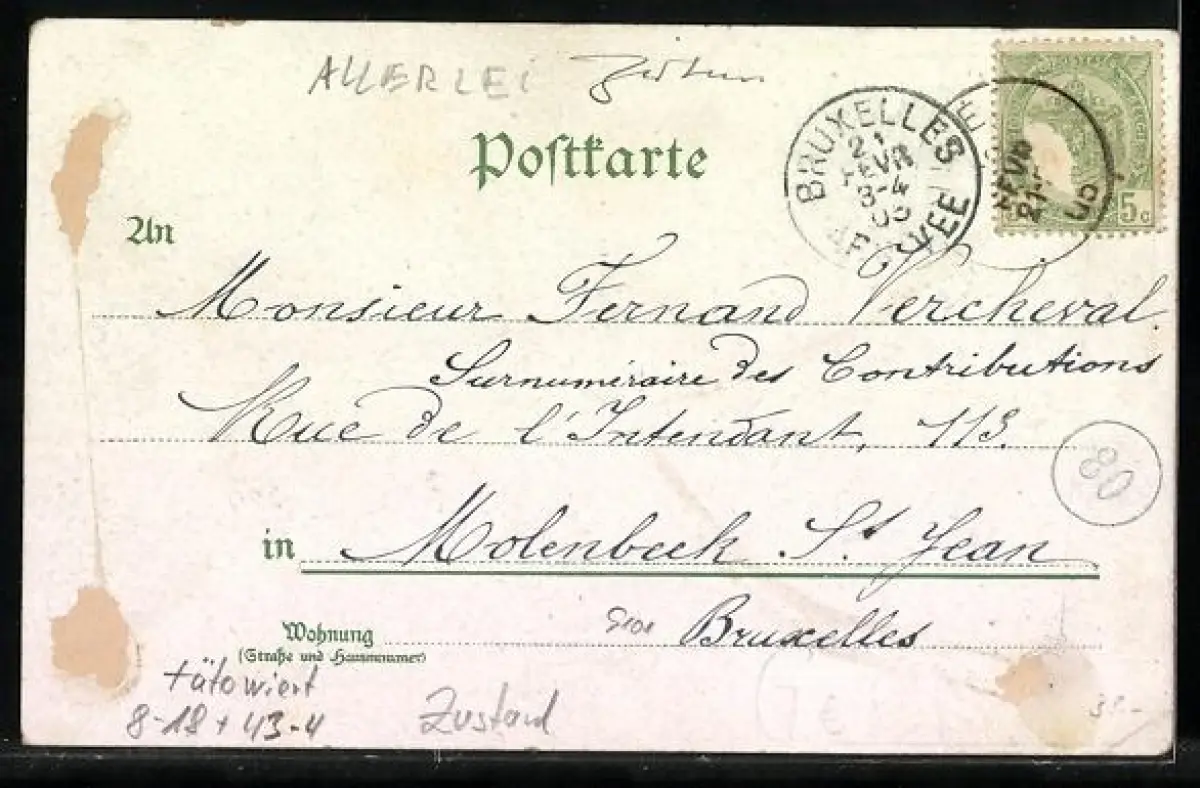 ALLERLEI
Postkarte
BRUXELLES
21
FEVR
3-4
ARRIVEE
FEVR
21
5c
An
Monsieur Fernand Vercheval
Surnuméraire des Contributions
Rue de l'Intendant, 113.
80
in Molenbeek St Jean
Wohnung Bruxelles
(Straße und Hausnummer)
tätowiert
8-18 + 43-4
Zustand